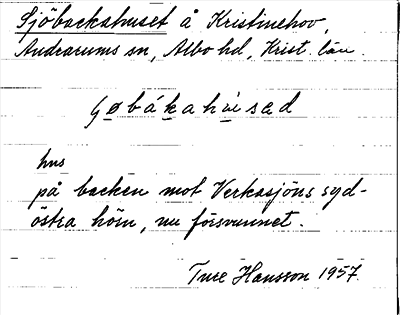 Sjöbackahuset å Kristinehov,
Andrarums sn, Albo hd, Krist. län.
hus
på backen mot Verkasjöns syd-
östra hörn, nu försvunnet.
Ture Hansson 1957.